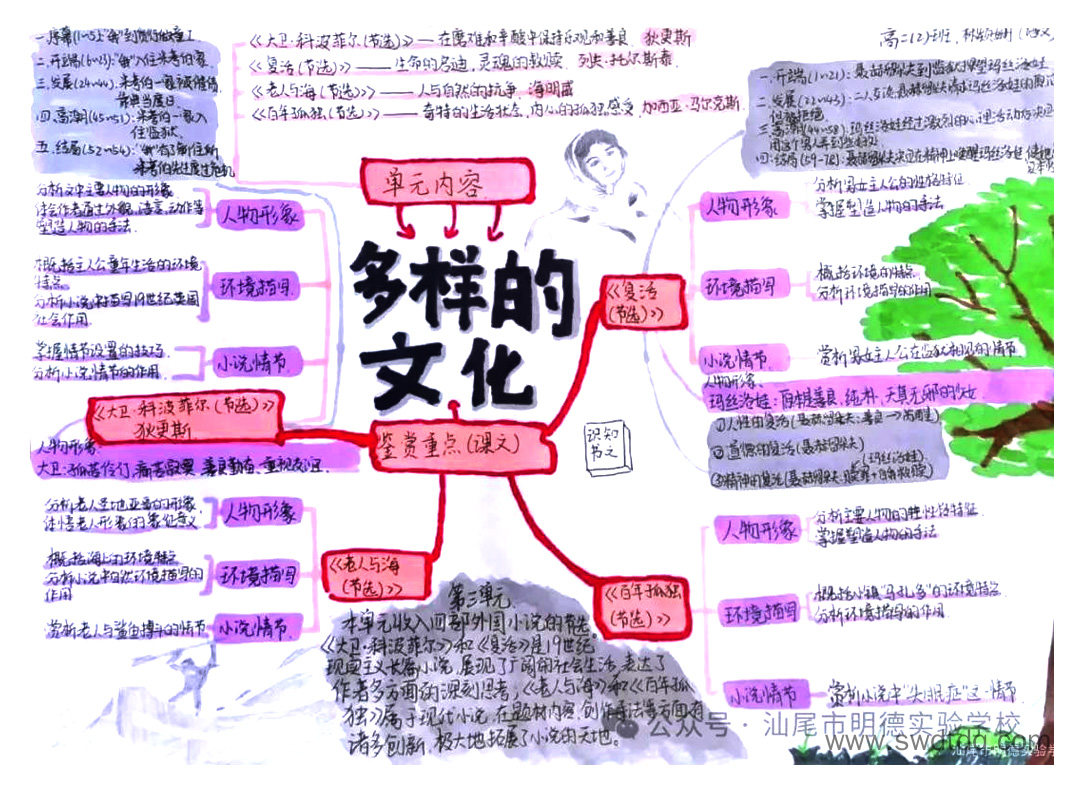 一.序幕(1~5):"我"到货行做童工.
二.开端(6~23):"我"入住米考伯家
三.发展(24~44):米考伯一家被催债
典当度日
四.高潮(45~51):米考伯一家入
住监狱.
五.结局(52~54):"我"有了新住所
米考伯先生度过危机
《大卫·科波菲尔(节选)》——在磨难和辛酸中保持乐观和善良. 狄更斯
《复活(节选)》——生命的忏迪,灵魂的救赎. 列夫·托尔斯泰
《老人与海(节选)》——人与自然的抗争. 海明威
《百年孤独(节选)》——奇特的生活状态,内心的孤独感受. 加西亚·马尔克斯.
高二(2)班.
一.开端(1~21):聂赫留朵夫到监狱探望玛丝洛娃
二.发展(22~43):二人交谈,聂赫留朵夫请求玛丝洛娃的原谅
但被拒绝.
三.高潮(44~58):玛丝洛娃经过激烈的心理活动
四.结局(59~78):聂赫留朵夫决定在精神上唤醒玛丝洛娃
单元内容
多样的
文化
鉴赏重点(课文)
知识
之书
《大卫·科波菲尔(节选)》
狄更斯
人物形象
分析文中主要人物的形象
体会作者通过外貌、语言、动作等
塑造人物的手法.
环境描写
概括主人公童年生活的环境
特点.
分析小说中描写19世纪英国
社会作用.
小说情节
掌握情节设置的技巧.
分析小说情节的作用.
人物形象:
大卫:孤苦伶仃,痛苦寂寞,善良勤奋,重视友谊.
《复活
(节选)》
人物形象
分析男女主人公的性格特征
掌握塑造人物的手法
环境描写
概括环境的特点
分析环境描写的作用
小说情节.
赏析男女主人公在监狱相见的情节
人物形象.
玛丝洛娃:原本是善良,纯朴,天真无邪的少女
①人性的复活(聂赫留朵夫:善良→
②道德的复活(聂赫留朵夫)
(玛丝洛娃)
③精神的复活(聂赫留朵夫:赎罪+自我救赎)
《老人与海
(节选)》
人物形象
分析老人圣地亚哥的形象.
体悟老人形象的象征意义
环境描写
概括海上的环境特点
分析小说中自然环境描写的
作用
小说情节.
赏析老人与鲨鱼搏斗的情节
《百年孤独
(节选)》
人物形象
分析主要人物的性格特征
掌握塑造人物的手法
环境描写
概括小镇"马孔多"的环境特点
分析环境描写的作用.
小说情节
赏析小说中"失眠症"这一情节
第三单元
本单元收入四部外国小说的节选.
《大卫·科波菲尔》和《复活》是19世纪
现实主义长篇小说,展现了广阔的社会生活,表达了
作者多方面的深刻思考,《老人与海》和《百年孤
独》属于现代小说,在题材内容,创作手法等方面有
诸多创新,极大地拓展了小说的天地.
公众号·汕尾市明德实验学校
www.swmdq.com
汕尾市明德实验学